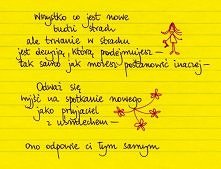 Wszystko co jest nowe
budzi strach
ale trwanie w strachu
jest decyzją, którą podejmujesz –
tak samo jak możesz postanowić inaczej –
Odważ się
wyjść na spotkanie nowego
jako przyjaciel
z uśmiechem –
ono odpowie ci tym samym